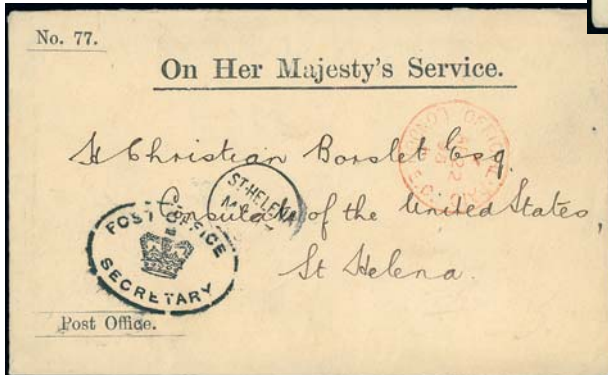 No. 77.
On Her Majesty's Service.
H Christian Borslet Esq.
Consulate of the United States,
St Helena.
ST. HELENA
POST OFFICE
SECRETARY
Post Office.